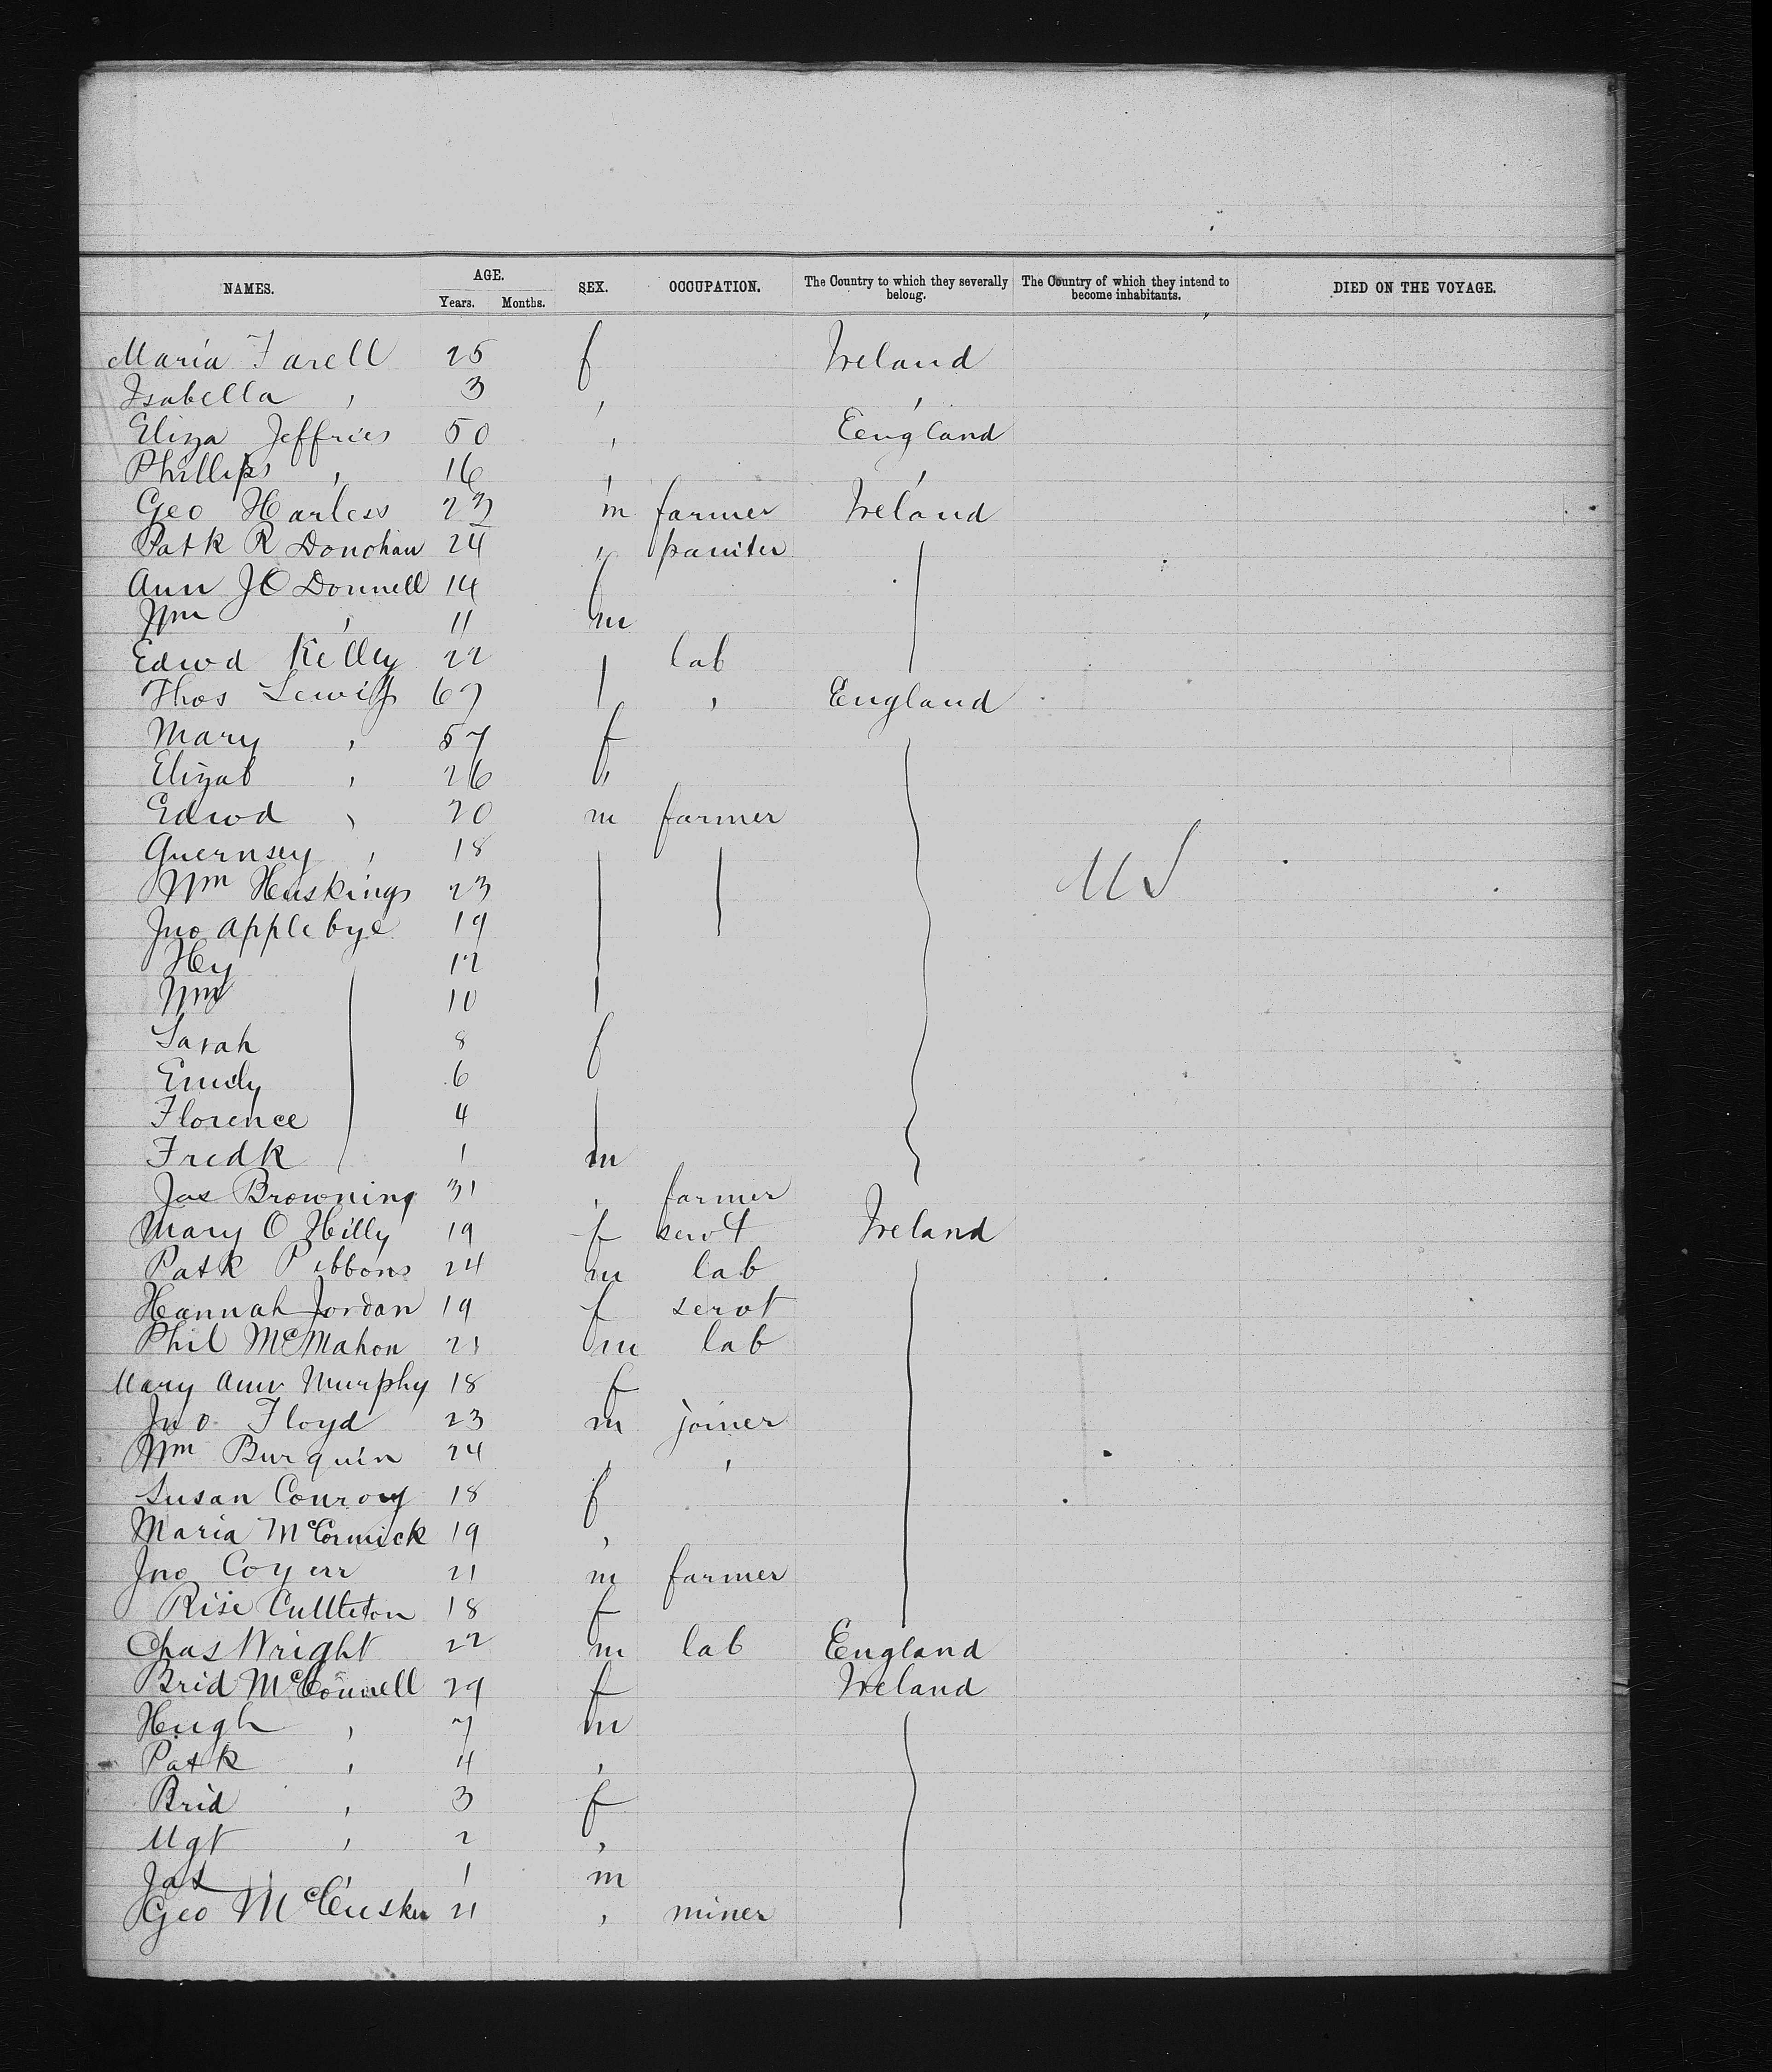 NAMES. AGE. SEX. OCCUPATION. The Country to which they severally belong. The Country of which they intend to become inhabitants. DIED ON THE VOYAGE.
Years. Months.
Maria Farell 25 f Ireland
Isabella , 3 , ,
Eliza Jeffries 50 , Eengland
Phillips , 16 , ,
Geo Harless 23 m farmer Ireland
Patk R Donohan 24 „ paniter
Ann J O Donnell 14 f
Wm , 11 m
Edwd Kelley 22 lab
Thos Lewiss 67 , England
Mary , 57 f
Elizab , 26 "
Edwd , 20 m farmer
Guernsey , 18
Wm Huskings 23 US
Jno Applebye 19
Hy 12
Wm 10
Sarah 8 f
Emily 6
Florence 4
Fredk 1 m
Jas Browning 31 , farmer
Mary O Hilly 19 f servt Ireland
Patk Pibbons 24 m lab
Hannah Jordan 19 f servt
Phil McMahon 21 m lab
Mary Ann Murphy 18 f
Jno Floyd 23 m joiner
Wm Burquin 24 , ,
Susan Conroy 18 f
Maria McCormick 19 ,
Jno 21 m farmer
Rise Cullteton 18 f
Chas Wright 22 m lab England
Brid McConnell 29 f Ireland
Hugh , 7 m
Patk , 4 ,
Brid , 3 f
Mgt , 2 ,
Jas , 1 m
Geo McCusker 21 , miner